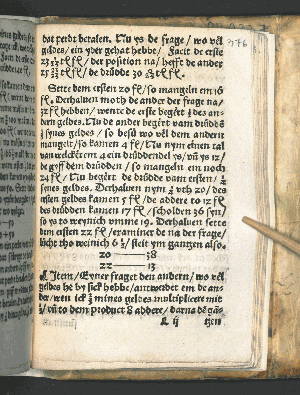 dat perdt betalen. Nu ys de frage / wo vël
geldes / ein yder gehat hebbe / Facit de erste
der position na / hefft de ander
de drüdde 30
Sette dem ersten 20 fl / so mangeln em 16
fl. Derhaluen moth de ander der frage na /
hebben / wente de erste begert
em geldes. Nu de ander begert vam drüdde
synes geldes / so besü wo vël dem andern
mangelt / so kamen 4 fl / Nu nym einen tal
van welckerem 4 ein drüddendel ys / vñ ys 12 /
de goff dem drüdden / so mangeln em noch
24 fl / Nu begert de drüdde vam ersten /
synes geldes. Derhaluen nym vth 20 / des
ersten geldes kamen 5 fl / de addere to 12 fl
des drüdden kamen 17 fl / scholden 36 syn /
so ys to weynich vmme 19. Derhaluen sette
dem ersten 22 fl / examiner de na der frage /
licht tho weinich 6 ½ / steit ym gangen also.
20 38
22 13
Item / Eyner fraget den andern / wo vël
geldes he by sick hebbe / antwerdet em de ander
/ wen ick mines geldes multiplicere mit
vñ to dem product 8 addere / darna de
ij